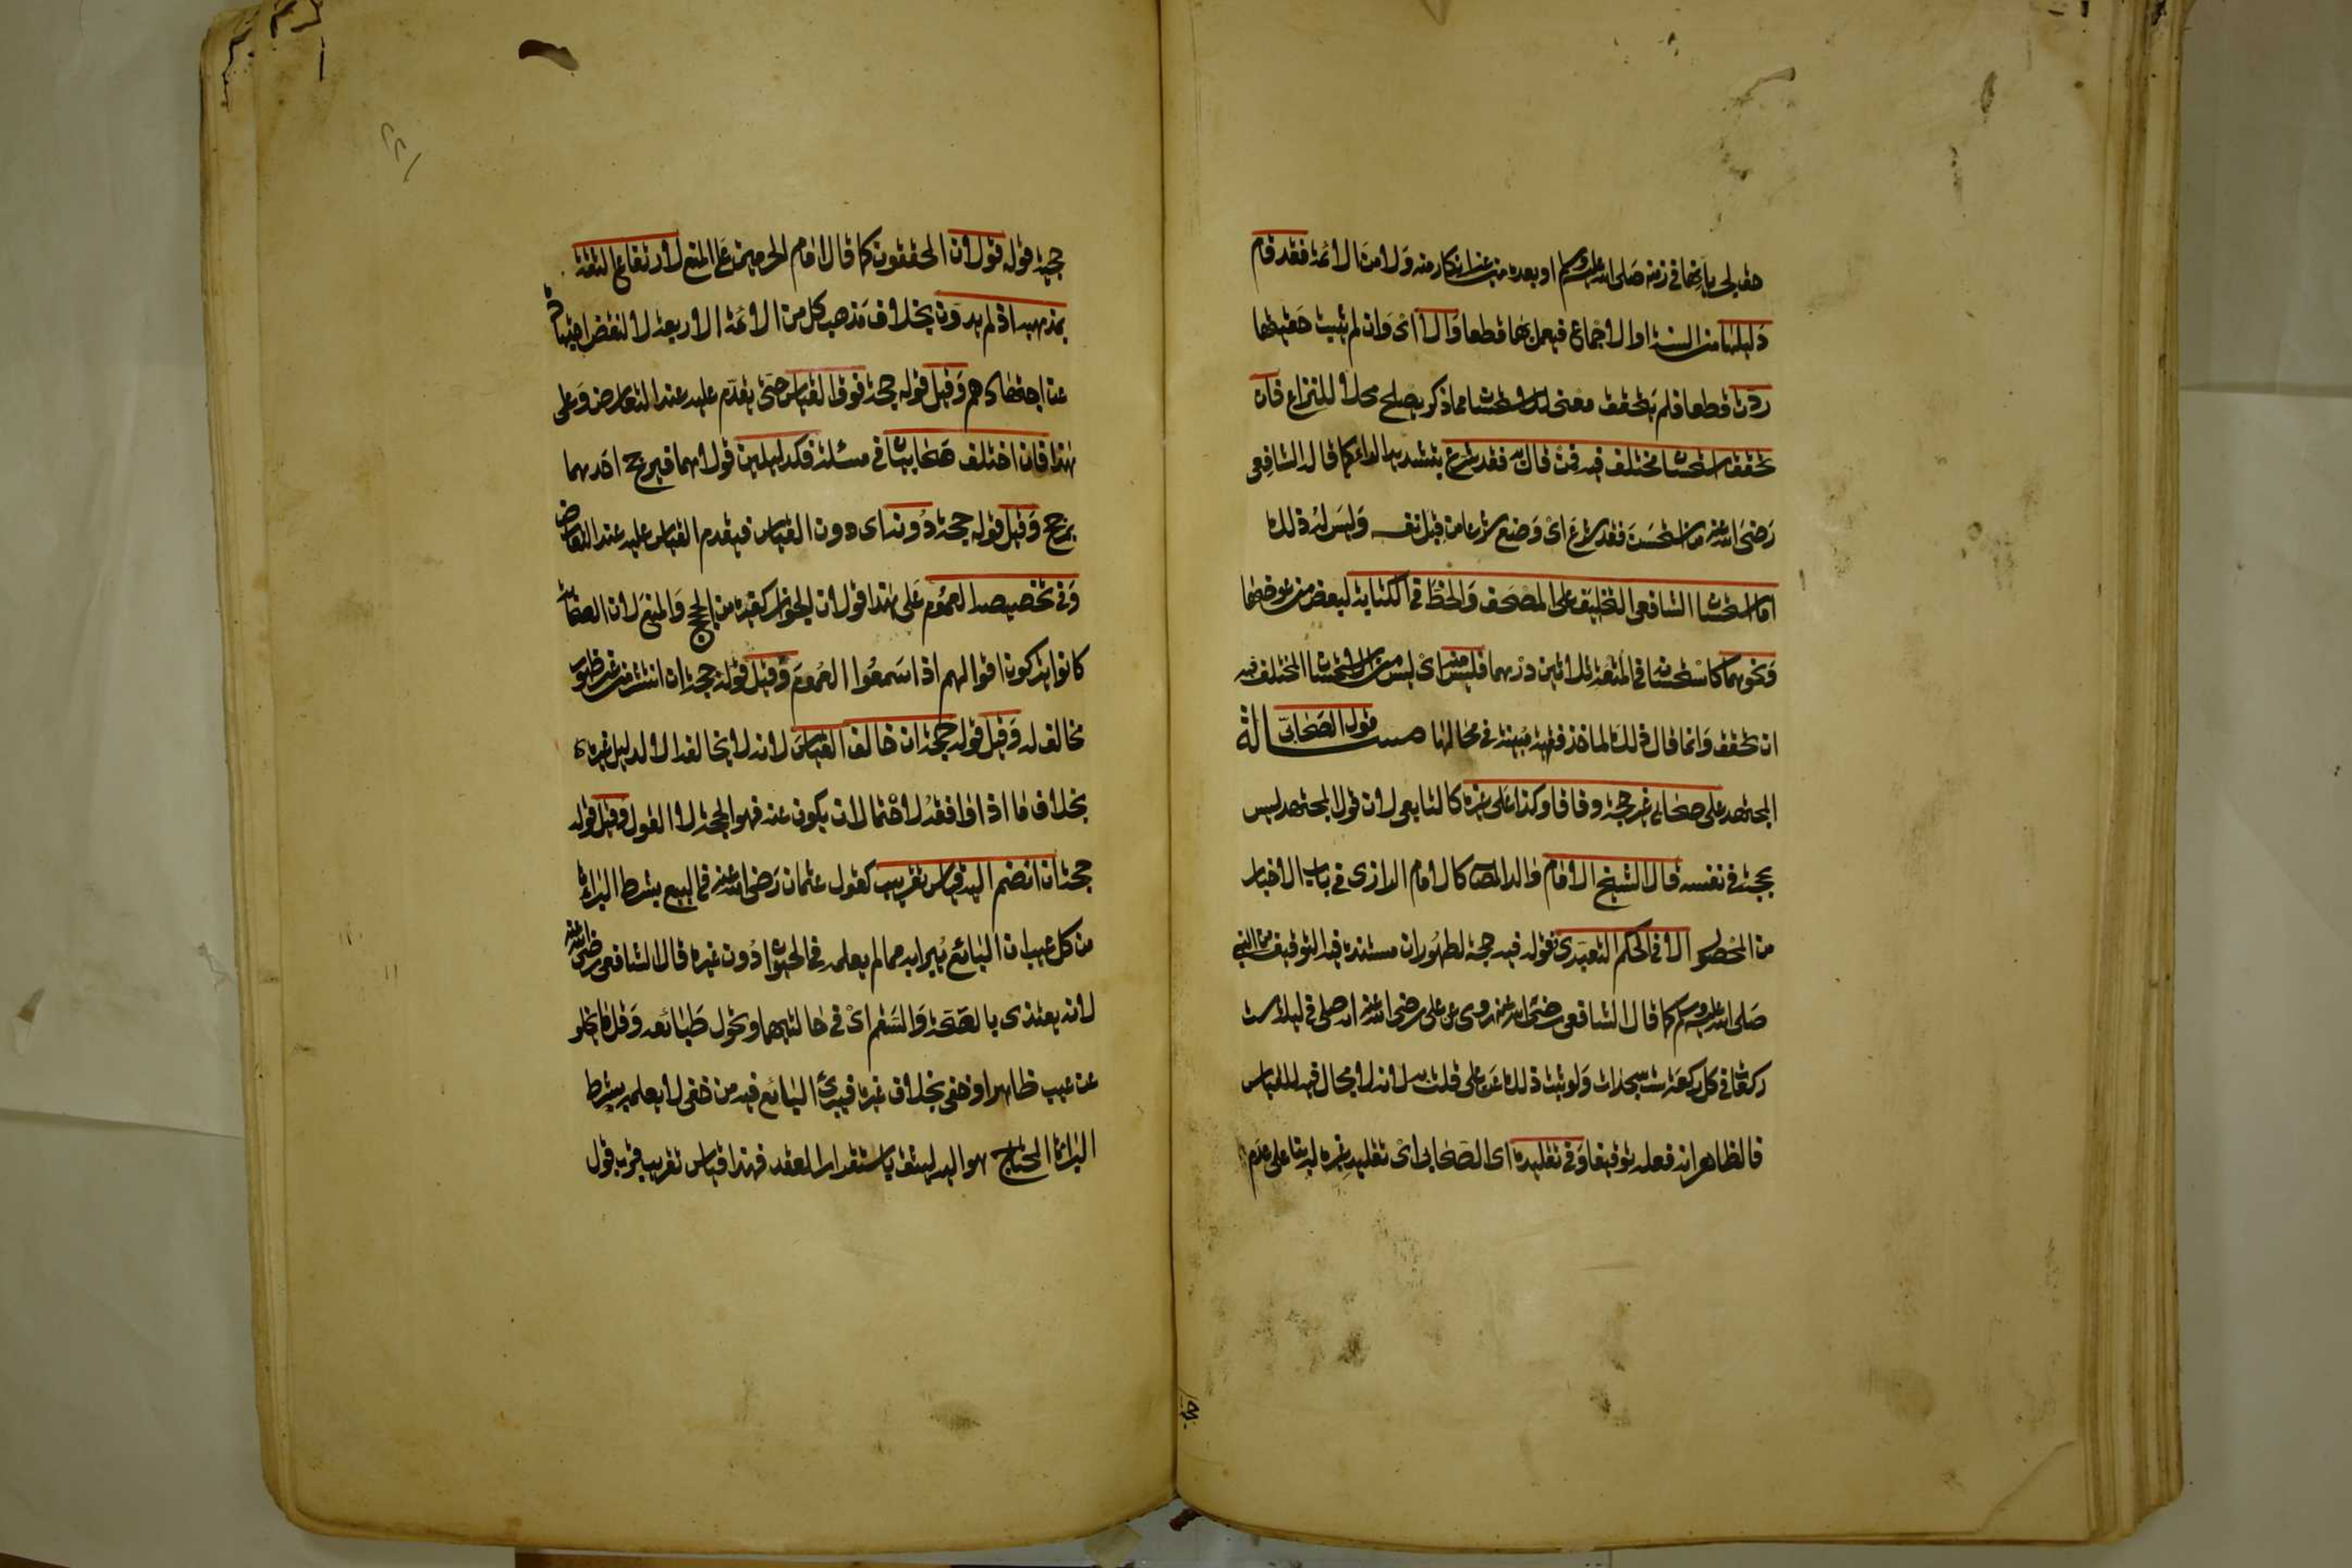 حقيتها لجريانها في زمنه صلى الله عليه وسلم او بعده من غير انكار منه ولا من الائمة فقد قام
دليلها من السنة او الاجماع فيعمل بها قطعا والا اى وان لم يثبت حقيتها
ردت قطعا فلم يتحقق معنى للاستحسان مما ذكر يصلح محلا للنزاع فان
تحقق استحسان مختلف فيه فمن قال به فقد شرع بتشديد الراء كما قال الشافعى
رضى الله عنه من استحسن فقد شرع اى وضع شرعا من قبل نفسه وليس له ذلك
اما استحسان الشافعى التحليف على المصحف والحط في الكتابة لبعض من عوضها
ونحوهما كاستحسانه في المتعة ثلاثين درهما فليس منه اى ليس من الاستحسان المختلف فيه
ان تحقق وانما قال ذلك لمآخذ فقهية مبينة في محالها مسالة قول الصحابى
المجتهد على صحابى غير حجة وفاقا وكذا على غيره كالتابعى لان قول المجتهد ليس
بحجة في نفسه قال الشيخ الامام والد المص كالامام الرازى في باب الاخبار
من المحصول الا في الحكم التعبدى فقوله فيه حجة لظهور ان مستنده فيه التوقيف من النبي
صلى الله عليه وسلم كما قال الشافعى رضى الله عنه روى عن على رضى الله عنه انه صلى في ليلة ست
ركعات في كل ركعة ست سجدات ولو ثبت ذلك عن على قلت به لانه لا مجال فيه للقياس
فالظاهر انه فعله توقيفا وفي تقليده اى الصحابى اى تقليد غيره له بناء على عدم
حجية قوله قولان المحققون كما قال امام الحرمين على المنع لارتفاع الثقة
بمذهبه اذ لم يدون بخلاف مذهب كل من الائمة الاربعة لا لنقص اجتهاده
عن اجتهادهم وقيل قوله حجة فوق القياس حتى يقدم عليه عند التعارض وعلى
هذا فان اختلف صحابيان في مسئلة فكدليلين قولاهما فيرجح احدهما
بمرجح وقيل قوله حجة دونه اى دون القياس فيقدم القياس عليه عند التعارض
وفي تخصيصه العموم على هذا قولان الجواز كغيره من الحجج والمنع لان الصحابة
كانوا يتركون اقوالهم اذا سمعوا العموم وقيل قوله حجة ان انتشر من غير ظهور
مخالف له وقيل قوله حجة ان خالف القياس لانه لا يخالفه الا لدليل غيره
بخلاف ما اذا وافقه لاحتمال ان يكون عنه فهو الحجة لا القول وقيل قوله
حجة ان انضم اليه قياس تقريب كقول عثمان رضى الله عنه في البيع بشرط البراءة
من كل عيب ان البائع يبرا به مما لم يعلمه في الحيوان دون غيره قال الشافعى رضى الله عنه
لانه يغتذى بالصحة والسقم اى في حالتيهما وتحول طبائعه وقل ما يخلو
عن عيب ظاهر او خفى بخلاف غيره فيبرئ البائع فيه من خفى لا يعلمه بشرط
البراءة المحتاج هو اليه ليثق باستقرار العقد فهذا قياس تقريب قرب قول